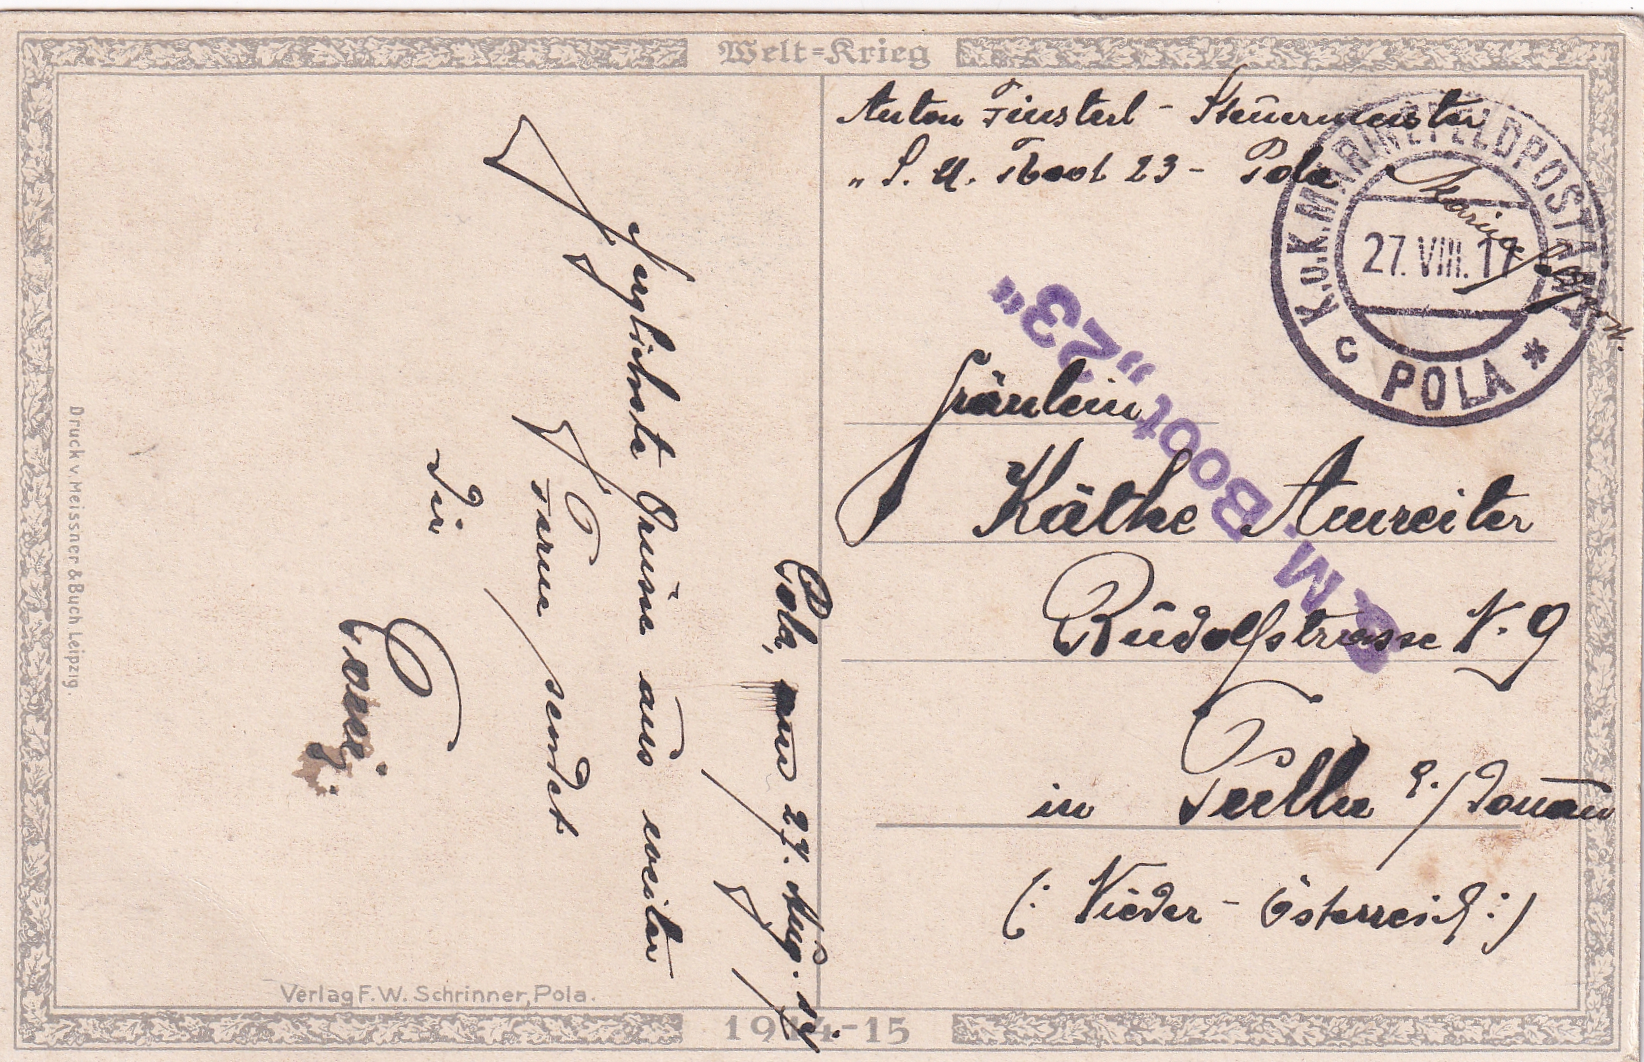 Welt=Krieg
Anton Finsterl - Steuermeister
„ S. U. Boot 23 - Pola
K.u.K. MARINEFELDPOSTAMT
27. VIII. 17
c POLA *
S.M. Boot „23“
Fräulein
Käthe Amreiter
Rudolfstrasse N. 9
in Tulln a./Donau
(: Nieder - Österreich :)
Pola, am 27. Aug.
Herzlichste Grüsse aus weiter
Ferne sendet
Dir
Toni
Druck v. Meissner & Buch Leipzig.
Verlag F. W. Schrinner, Pola.
1914-15